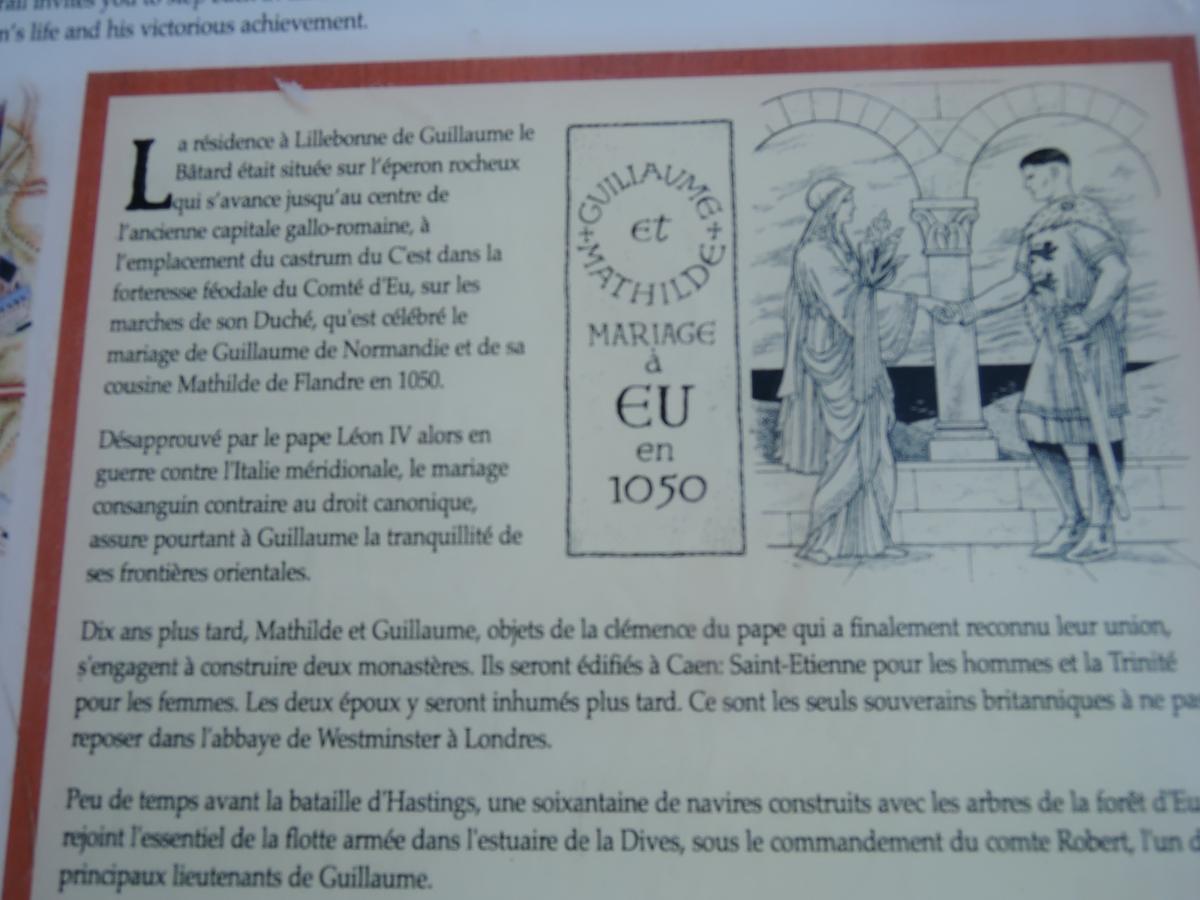 invites you to step
n's life and his victorious achievement.
La résidence à Lillebonne de Guillaume le
Bâtard était située sur l'éperon rocheux
qui s'avance jusqu'au centre de
l'ancienne capitale gallo-romaine, à
l'emplacement du castrum du C'est dans la
forteresse féodale du Comté d'Eu, sur les
marches de son Duché, qu'est célébré le
mariage de Guillaume de Normandie et de sa
cousine Mathilde de Flandre en 1050.
Désapprouvé par le pape Léon IV alors en
guerre contre l'Italie méridionale, le mariage
consanguin contraire au droit canonique,
assure pourtant à Guillaume la tranquillité de
ses frontières orientales.
+GUILLAUME+
et
MATHILDE
MARIAGE
à
EU
en
1050
Dix ans plus tard, Mathilde et Guillaume, objets de la clémence du pape qui a finalement reconnu leur union,
s'engagent à construire deux monastères. Ils seront édifiés à Caen: Saint-Etienne pour les hommes et la Trinité
pour les femmes. Les deux époux y seront inhumés plus tard. Ce sont les seuls souverains britanniques à ne pa
reposer dans l'abbaye de Westminster à Londres.
Peu de temps avant la bataille d'Hastings, une soixantaine de navires construits avec les arbres de la forêt d'Eu
rejoint l'essentiel de la flotte armée dans l'estuaire de la Dives, sous le commandement du comte Robert, l'un d
principaux lieutenants de Guillaume.